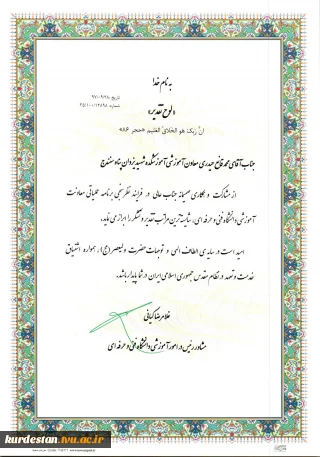 به نام خدا
تاریخ: ۹۷/۰۹/۲۸
شماره: ۲۵/۱۰۰/۱۲۸۹۸
«لوح تقدیر»
انّ ربّک هو الخلاّق العلیم «حجر ۸۶»
جناب آقای محمد قانع حیدری معاون آموزشی آموزشکده شهید یزدان پناه سنندج
از مشارکت و همکاری صمیمانه جناب عالی در فرایند نظرسنجی برنامه عملیاتی معاونت
آموزشی دانشگاه فنی و حرفه ای، صمیمانه ترین مراتب تقدیر و تشکر را ابراز می نماید.
امید است در سایه ی الطاف الهی و توجهات حضرت ولیعصر (عج)، همواره اشتیاق
خدمت و تعهد در نظام مقدس جمهوری اسلامی ایران در شما پایدار باشد.
غلامرضا کیانی
مشاور رئیس در امور آموزشی دانشگاه فنی و حرفه ای
kurdestan.tvu.ac.ir